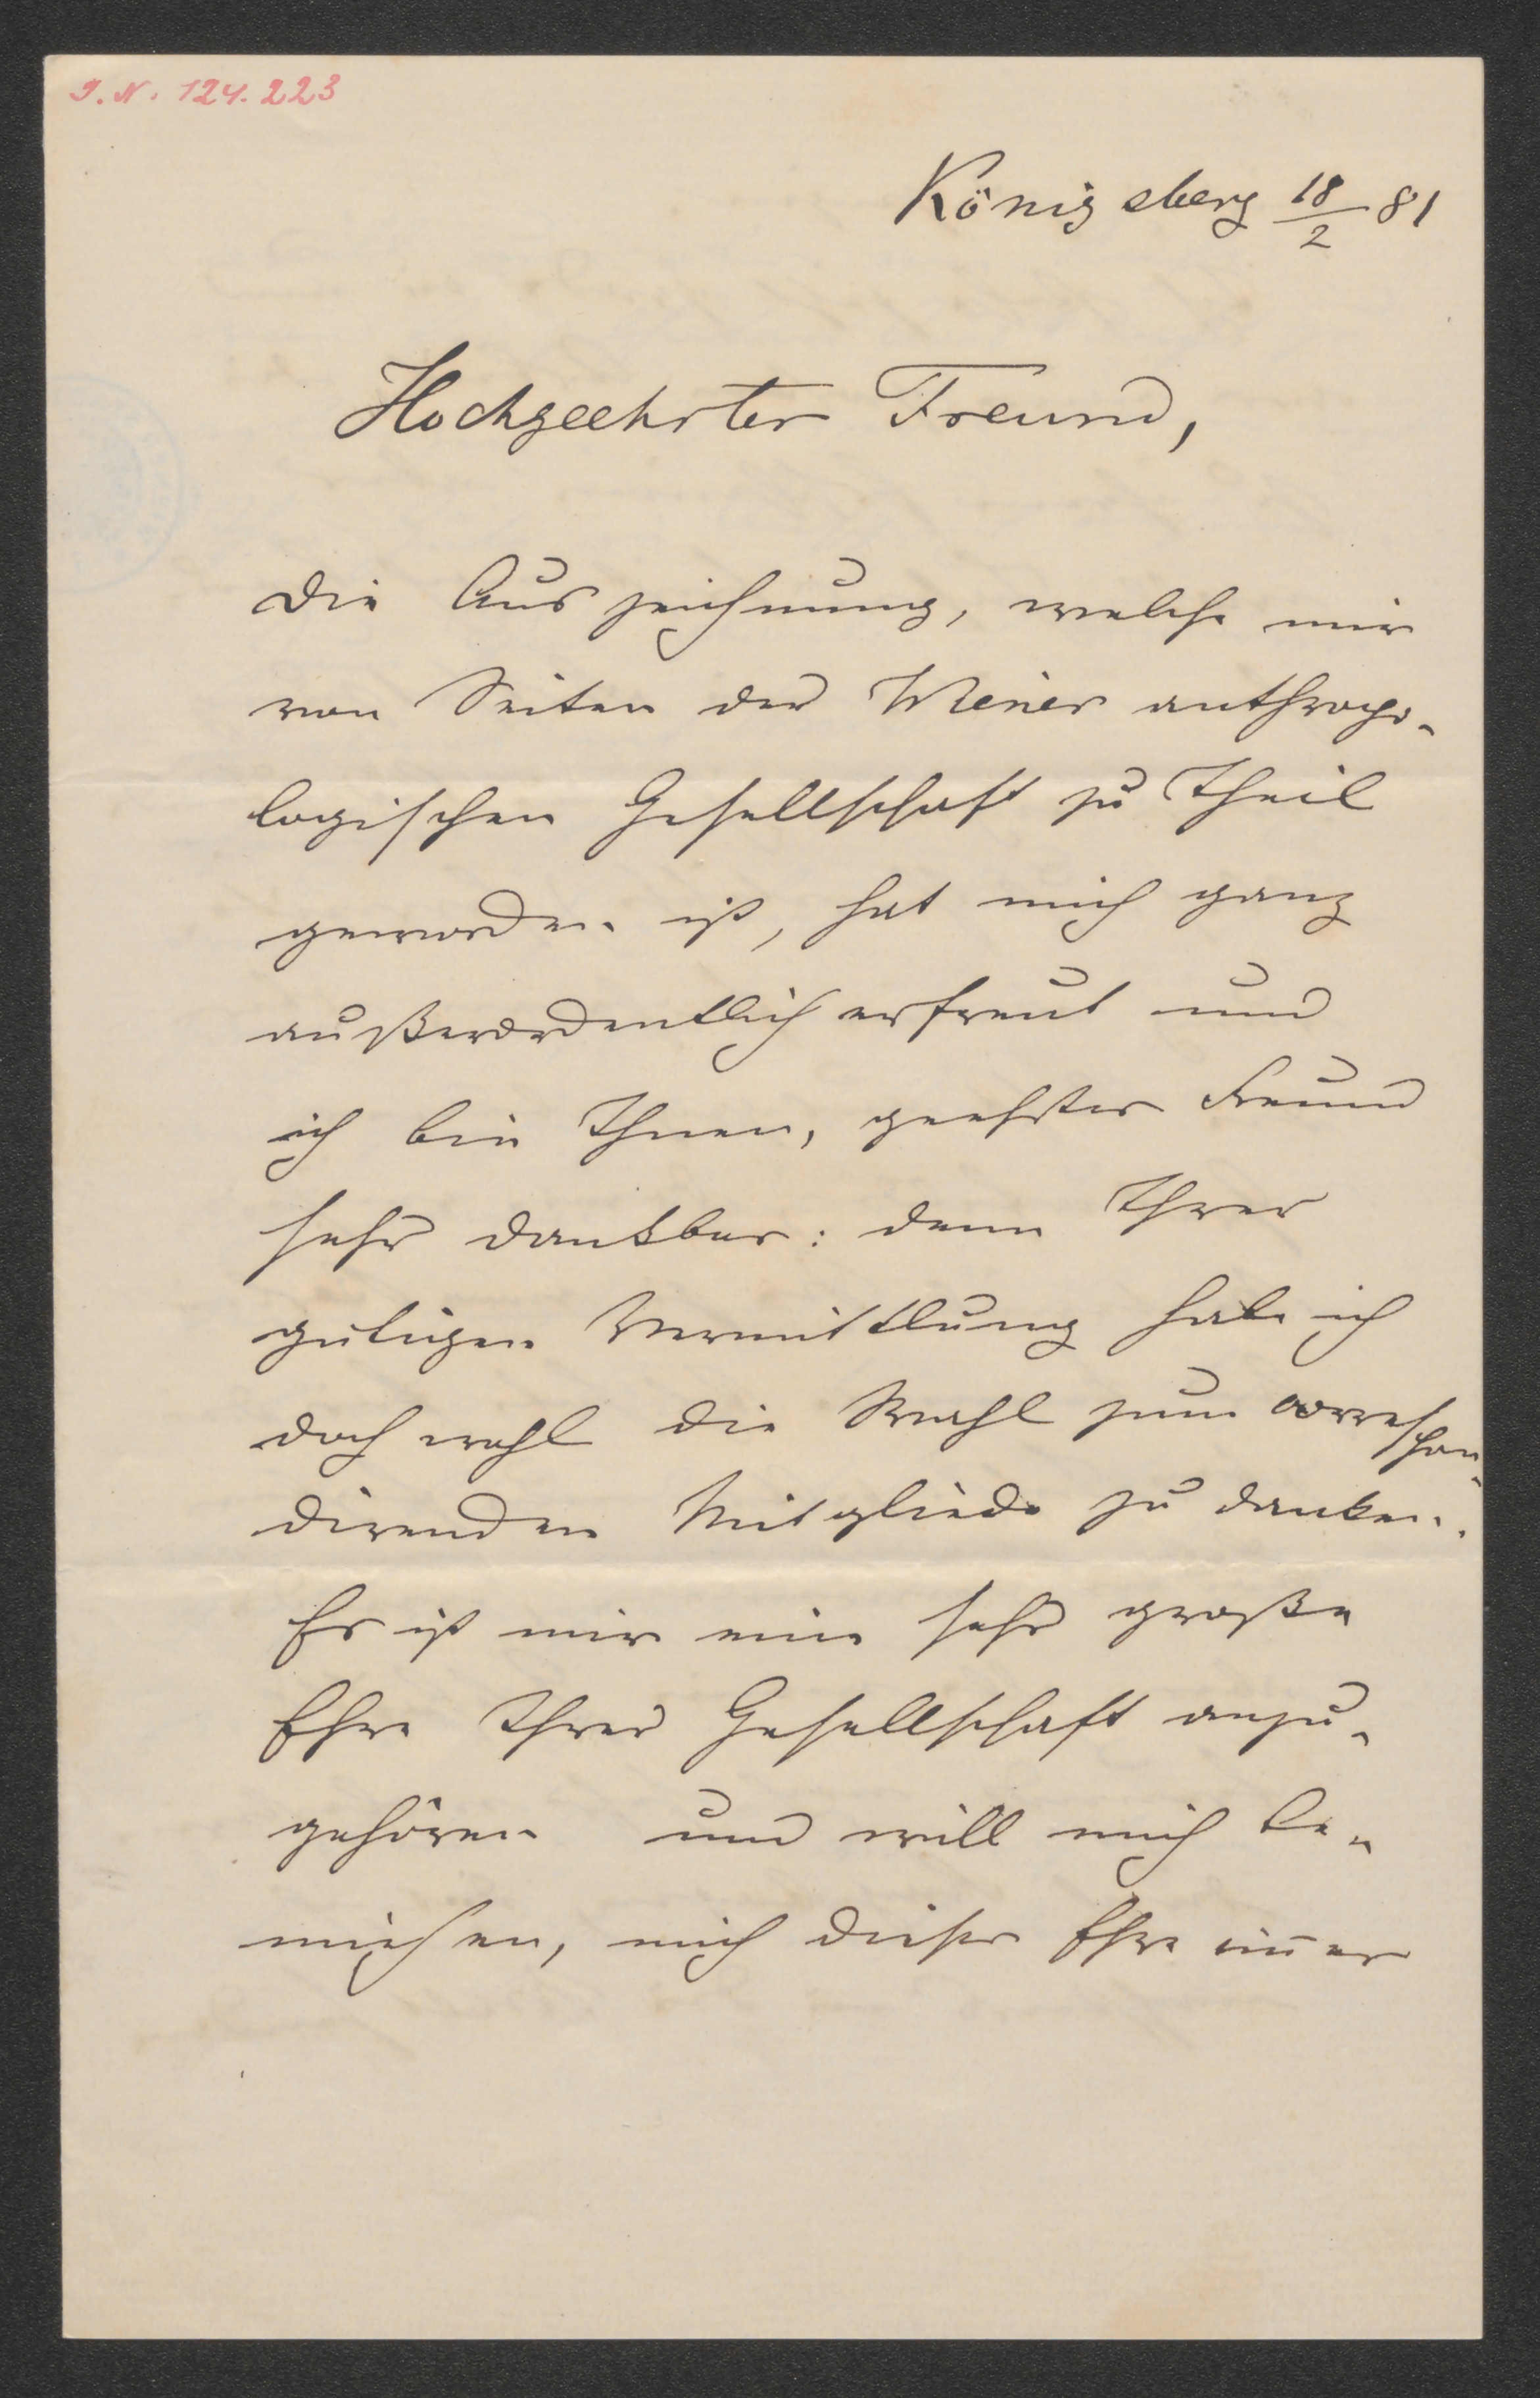 I. N. 124.223
Königsberg 18/2 81
Hochgeehrter Freund,
die Auszeichnung, welche mir
von Seiten der Wiener anthropo-
logischen Gesellschaft zu Theil
geworden ist, hat mich ganz
außerordentlich erfreut und
ich bin Ihnen, geehrter Freund
sehr dankbar: denn Ihrer
gütigen Vermittlung habe ich
doch wohl die Wahl zum correspon-
direnden Mitgliede zu danken.
Es ist mir eine sehr große
Ehre Ihrer Gesellschaft anzu-
gehören und will mich be-
mühen, mich dieser Ehre im̄er